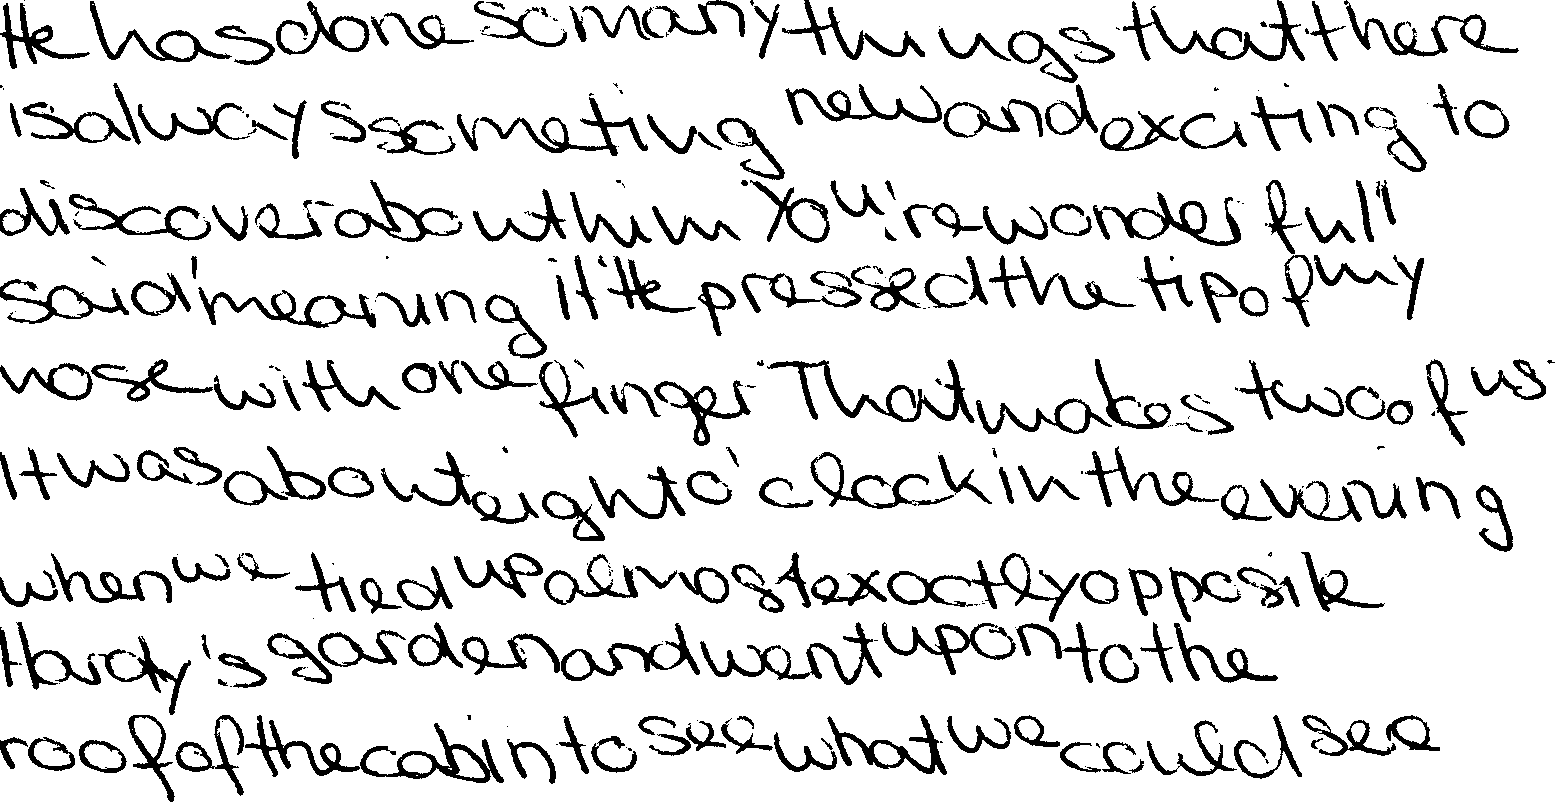 He has done so many things that there
is always someting new and exciting to
discover about him You're wonderful I
said meaning it He pressed the tip of my
nose with one finger That makes two of us
It was about eight o'clock in the evening
when we tied up almost exactly opposite
Hardy's garden and went up on to the
roof of the cabin to see what we could see